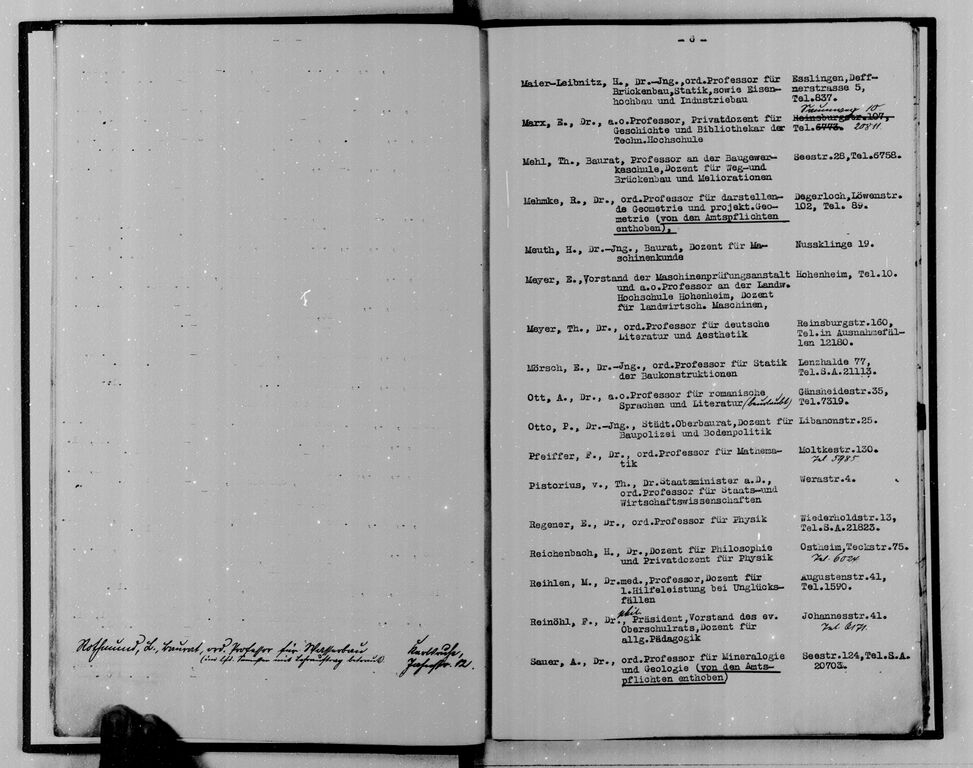 Rothmund, L., Baurat, ord. Professor für Wasserbau
Karlsruhe,
(im lfd. Semester mit Lehrauftrag betraut)
12.
- 6 -
Maier-Leibnitz, H., Dr.-Jng.,ord.Professor für Brückenbau,Statik,sowie Eisen-
hochbau und Industriebau
Esslingen,Deff-
nerstrasse 5,
Tel.837.
Marx, E., Dr., a.o.Professor, Privatdozent für
Geschichte und Bibliothekar der
Techn.Hochschule
10
Reinsburgstr.107,
Tel.6773. 20811
Mehl, Th., Baurat, Professor an der Baugewer-
keschule,Dozent für Weg-und
Brückenbau und Meliorationen
Seestr.28,Tel.6758.
Mehmke, R., Dr., ord.Professor für darstellen-
de Geometrie und projekt.Geo-
metrie (von den Amtspflichten
enthoben),
Degerloch,Löwenstr.
102, Tel. 89.
Meuth, H., Dr.-Jng., Baurat, Dozent für Ma-
schinenkunde
Nussklinge 19.
Meyer, E.,Vorstand der Maschinenprüfungsanstalt
und a.o.Professor an der Landw.
Hochschule Hohenheim, Dozent
für landwirtsch. Maschinen,
Hohenheim, Tel.10.
Meyer, Th., Dr., ord.Professor für deutsche
Literatur und Aesthetik
Reinsburgstr.160,
Tel.in Ausnahmefäl-
len 12180.
Mörsch, E., Dr.-Jng., ord.Professor für Statik
der Baukonstruktionen
Lenzhalde 77,
Tel.S.A.21113.
Ott, A., Dr., a.o.Professor für romanische
Sprachen und Literatur (beurlaubt)
Gänsheidestr.35,
Tel.7319.
Otto, P., Dr.-Jng., Städt.Oberbaurat,Dozent für
Baupolizei und Bodenpolitik
Libanonstr.25.
Pfeiffer, F., Dr., ord.Professor für Mathema-
tik
Moltkestr.130.
Tel 5985
Pistorius, v., Th., Dr.Staatsminister a.D.,
ord.Professor für Staats-und
Wirtschaftswissenschaften
Werastr.4.
Regener, E., Dr., ord.Professor für Physik
Wiederholdstr.13,
Tel.S.A.21823.
Reichenbach, H., Dr.,Dozent für Philosophie
und Privatdozent für Physik
Ostheim,Teckstr.75.
Tel. 6024
Reihlen, M., Dr.med.,Professor,Dozent für
1.Hilfeleistung bei Unglücks-
fällen
Augustenstr.41,
Tel.1590.
phil.
Reinöhl, F., Dr., Präsident,Vorstand des ev.
Oberschulrats,Dozent für
allg.Pädagogik
Johannesstr.41.
Tel
Sauer, A., Dr., ord.Professor für Mineralogie
und Geologie (von den Amts-
pflichten enthoben)
Seestr.124,Tel.S.A.
20703.